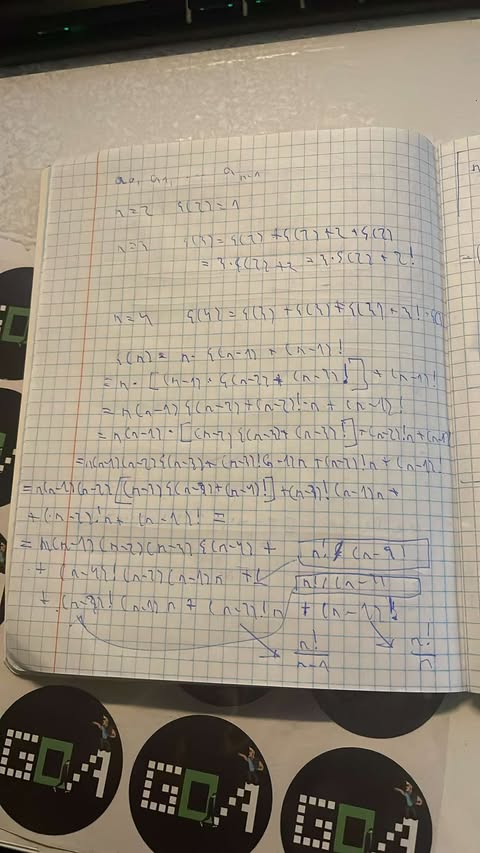 a₀, a₁, ... aₙ₋₁
n=2 f(2)=1
n=3 f(3)=f(2)+f(2)+2+f(2)
=3·f(2)+2=3·f(2)+2!
n=4 f(4)=f(3)+f(3)+f(3)+3!·
f(n)=n·f(n-1)+(n-1)!
=n·[(n-1)·f(n-2)+(n-2)!]+(n-1)!
=n(n-1)f(n-2)+(n-2)!·n+(n-1)!
=n(n-1)·[(n-2)f(n-3)+(n-3)!]+(n-2)!n+(n-1)
=n(n-1)(n-2)f(n-3)+(n-3)!(n-1)n+(n-2)!n+(n-1)!
=n(n-1)(n-2)[(n-3)f(n-4)+(n-4)!]+(n-3)!(n-1)n+
+(n-2)!n+(n-1)!=
=n(n-1)(n-2)(n-3)f(n-4)+ n! (n-4)
+(n-4)!(n-2)(n-1)n+ n!
+(n-3)!(n-1)n+(n-2)!n+(n-1)!
n!/n-1 n!/n
GDA
GDA
GDA